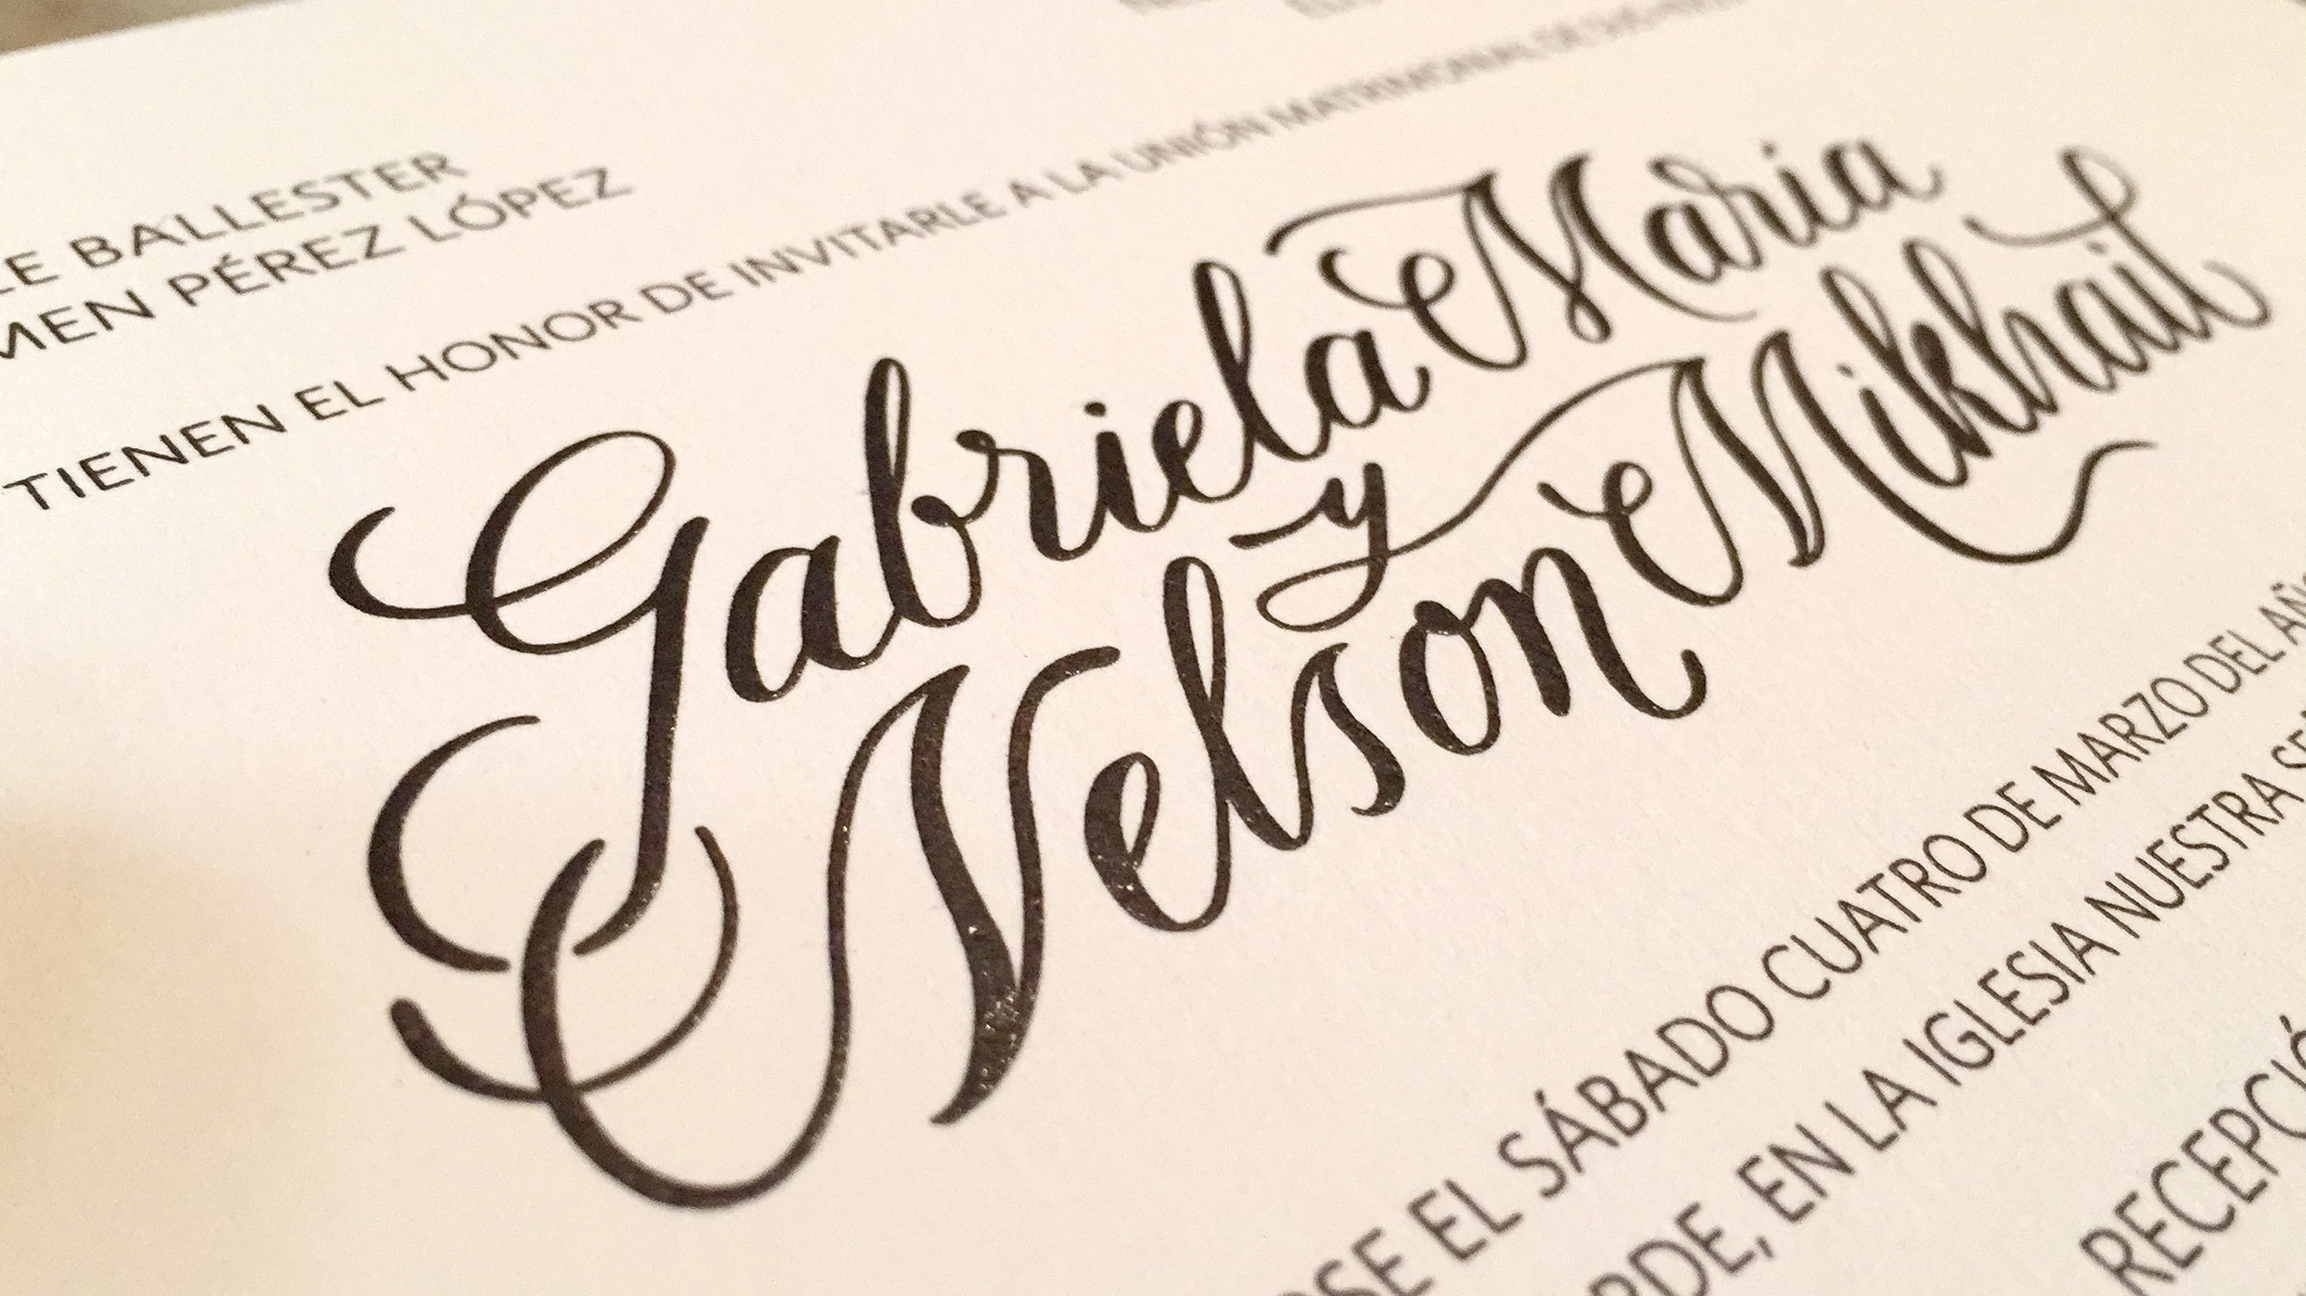 LE BALLESTER
MEN PÉREZ LÓPEZ
TIENEN EL HONOR DE INVITARLE A LA UNIÓN MATRIMONIAL DE SUS
Gabriela Maria
y
Nelson Mikhail
SE EL SÁBADO CUATRO DE MARZO DEL AÑ
RDE, EN LA IGLESIA NUESTRA SE
RECEPCIÓ